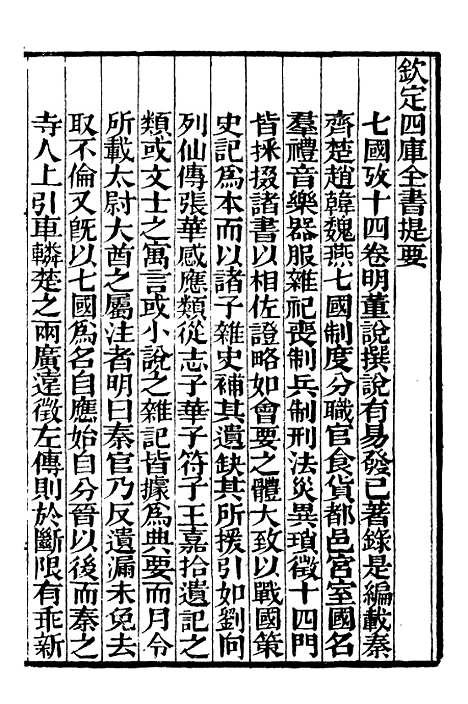 欽定四庫全書提要
七國攷十四卷明董說撰說有易發已著錄是編載秦
齊楚趙韓魏燕七國制度分職官食貨都邑宮室國名
羣禮音樂器服雜祀喪制兵制刑法災異瑣徵十四門
皆採掇諸書以相佐證略如會要之體大致以戰國策
史記爲本而以諸子雜史補其遺缺其所援引如劉向
列仙傳張華感應類從志子華子符子王嘉拾遺記之
類或文士之寓言或小說之雜記皆據爲典要而月令
所載太尉大酋之屬注者明曰秦官乃反遺漏未免去
取不倫又旣以七國爲名自應始自分晉以後而秦之
寺人上引車轔楚之兩廣遠徵左傳則於斷限有乖新